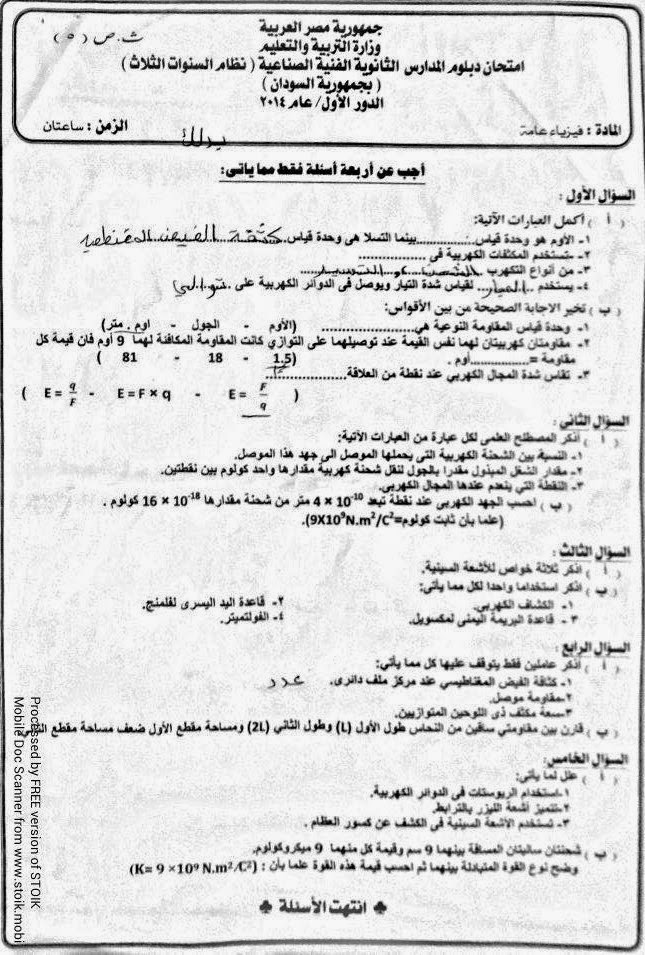 ث.ص (٥)
جمهورية مصر العربية
وزارة التربية والتعليم
امتحان دبلوم المدارس الثانوية الفنية الصناعية ( نظام السنوات الثلاث )
( بجمهورية السودان )
الدور الأول/ عام ٢٠١٤
المادة : فيزياء عامة الزمن : ساعتان
أجب عن أربعة أسئلة فقط مما يأتى :
السؤال الأول :
( أ ) أكمل العبارات الآتية:
١- الأوم هو وحدة قياس..............بينما التسلا هى وحدة قياس كثافة الفيض المغناطيسى
٢- تستخدم المكثفات الكهربية فى .................
٣- من أنواع التكهرب
٤- يستخدم لقياس شدة التيار ويوصل فى الدوائر الكهربية على توالى
( ب ) تخير الاجابة الصحيحة من بين الأقواس:
١- وحدة قياس المقاومة النوعية هي.................... (الأوم - الجول - اوم . متر)
٢- مقاومتان كهربيتان لهما نفس القيمة عند توصيلهما على التوازي كانت المقاومة المكافئة لهما 9 أوم فان قيمة كل
مقاومة =...............أوم . (1.5 - 18 - 81 )
٣- تقاس شدة المجال الكهربي عند نقطة من العلاقة....................
( E = F/q - E = F × q - E = q/F )
السؤال الثانى :
( أ ) أذكر المصطلح العلمى لكل عبارة من العبارات الآتية:
١- النسبة بين الشحنة الكهربية التى يحملها الموصل الى جهد هذا الموصل.
٢- مقدار الشغل المبذول مقدرا بالجول لنقل شحنة كهربية مقدارها واحد كولوم بين نقطتين.
٣- النقطة التي ينعدم عندها المجال الكهربى.
( ب ) احسب الجهد الكهربى عند نقطة تبعد 4 × 10⁻¹⁰ متر من شحنة مقدارها 16 × 10⁻¹⁸ كولوم .
(علما بأن ثابت كولوم=9X10⁹N.m²/C²).
السؤال الثالث :
( أ ) اذكر ثلاثة خواص للأشعة السينية.
( ب ) اذكر استخداما واحدا لكل مما يأتى:
١- الكشاف الكهربى. ٢- قاعدة اليد اليسرى لفلمنج.
٣- قاعدة البريمة اليمنى لمكسويل. ٤- الفولتميتر.
السؤال الرابع :
( أ ) أذكر عاملين فقط يتوقف عليها كل مما يأتي:
١- كثافة الفيض المغناطيسي عند مركز ملف دائرى. عدد
٢- مقاومة موصل.
٣- سعة مكثف ذى اللوحين المتوازيين.
( ب ) قارن بين مقاومتي ساقين من النحاس طول الأول (L) وطول الثاني (2L) ومساحة مقطع الأول ضعف مساحة مقطع الثاني
السؤال الخامس:
( أ ) علل لما يأتى:
١- استخدام الريوستات فى الدوائر الكهربية.
٢- تتميز أشعة الليزر بالترابط.
٣- تستخدم الأشعة السينية فى الكشف عن كسور العظام .
( ب ) شحنتان سالبتان المسافة بينهما 9 سم وقيمة كل منهما 9 ميكروكولوم.
وضح نوع القوة المتبادلة بينهما ثم احسب قيمة هذه القوة علما بأن : (K= 9 ×10⁹ N.m²/C²)
♣ انتهت الأسئلة ♣
Processed by FREE version of STOIK
Mobile Doc Scanner from www.stoik.mobi